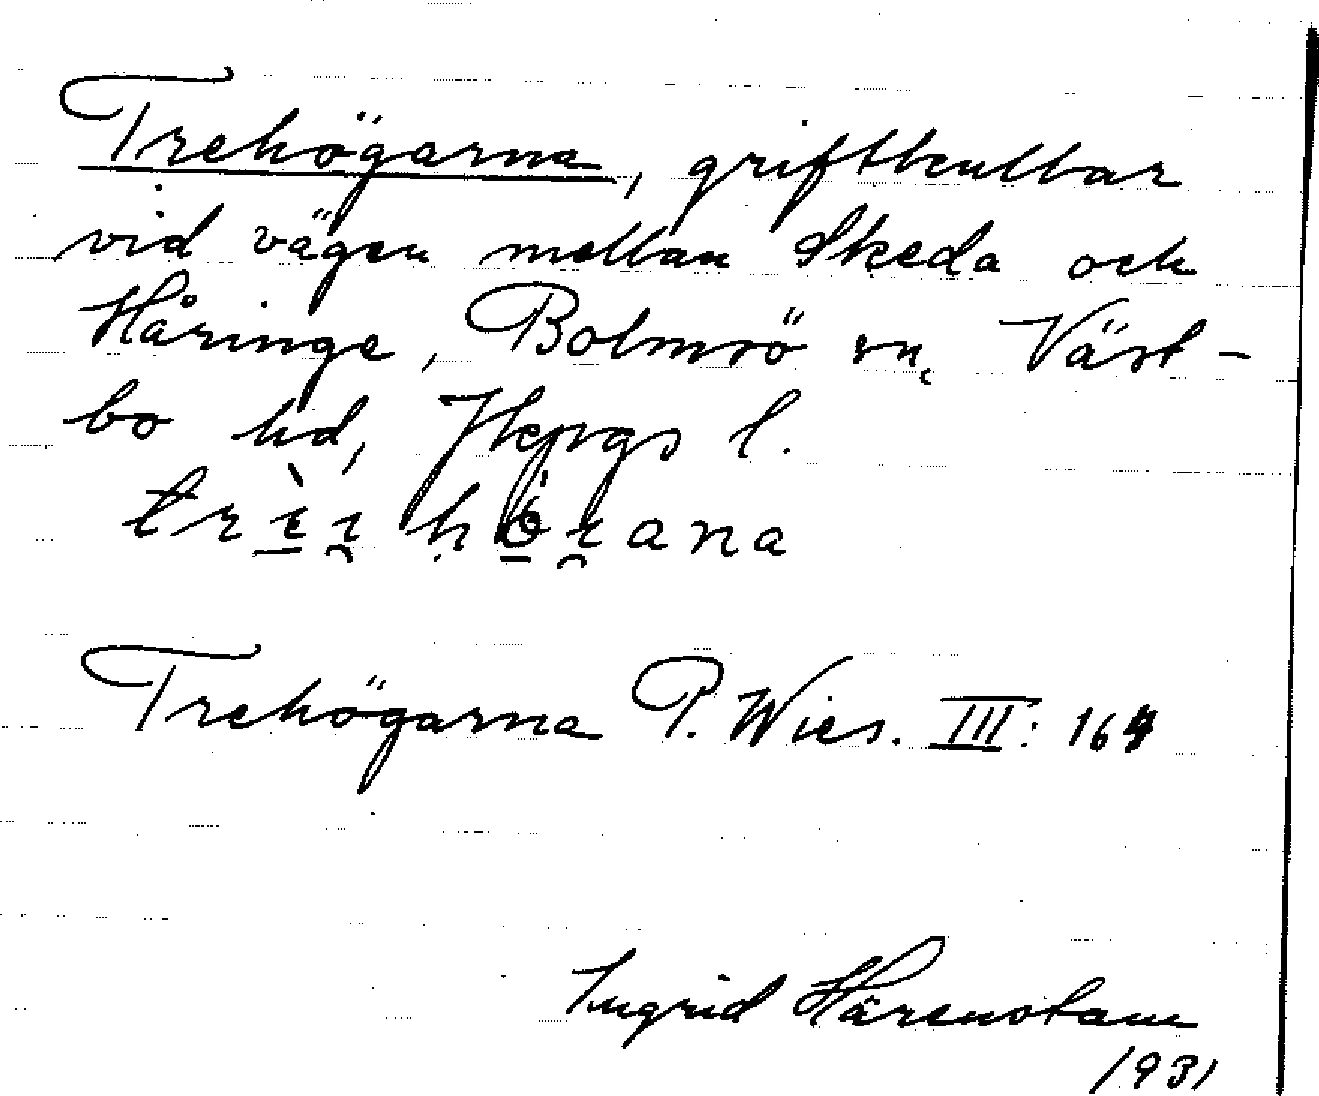 Trehögarna, griftkullar
vid vägen mellan Skeda och
Håringe, Bolmsö sn, Väst-
bo hd, Jkpgs l.
Trehögarna P. Wies. III: 164
Ingrid Härenstam
1931